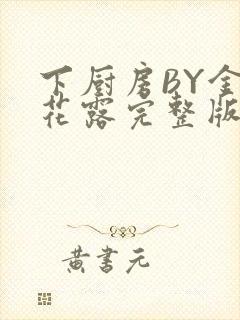 下厨房BY金
花露完整版
黄书元